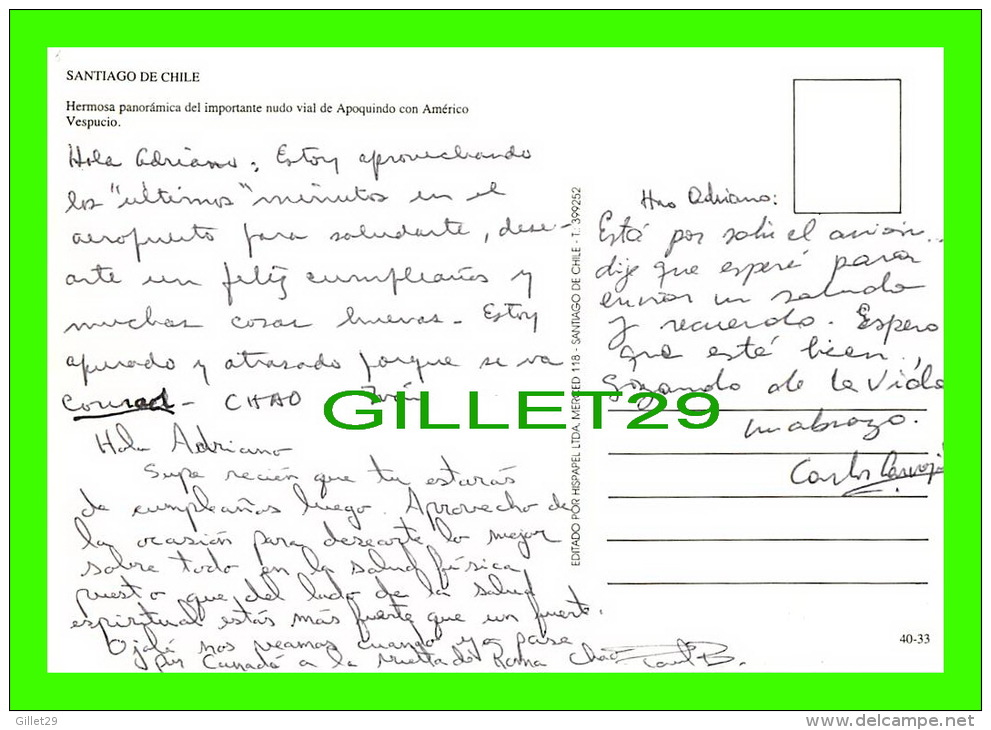 SANTIAGO DE CHILE
Hermosa panorámica del importante nudo vial de Apoquindo con Américo
Vespucio.
Hola Adriano: Estoy aprovechando
los "últimos" minutos en el
aeropuerto para saludarte, dese-
arte un feliz cumpleaños y
muchas cosas buenas - Estoy
apurado y atrasado porque se va
Conrad - CHAO
Hola Adriano
Supe recién que tu estarás
de cumpleaños luego. Aprovecho de
la ocasión para desearte lo mejor
sobre todo en la salud física,
puesto que del lado de la salud
espiritual estás más fuerte que un fuerte.
Ojalá nos veamos cuando yo pase
por Canadá a la vuelta de Roma Chao
EDITADO POR HISPAPEL LTDA. MERCED 118 - SANTIAGO DE CHILE - T.: 399252
Hno Adriano:
Está por salir el avión..
dije que esperé para
enviar un saludo
y recuerdo. Espero
que esté bien,
gozando de la vida
un abrazo.
Carlos
40-33
GILLET29
Gillet29
http://www.delcampe.net